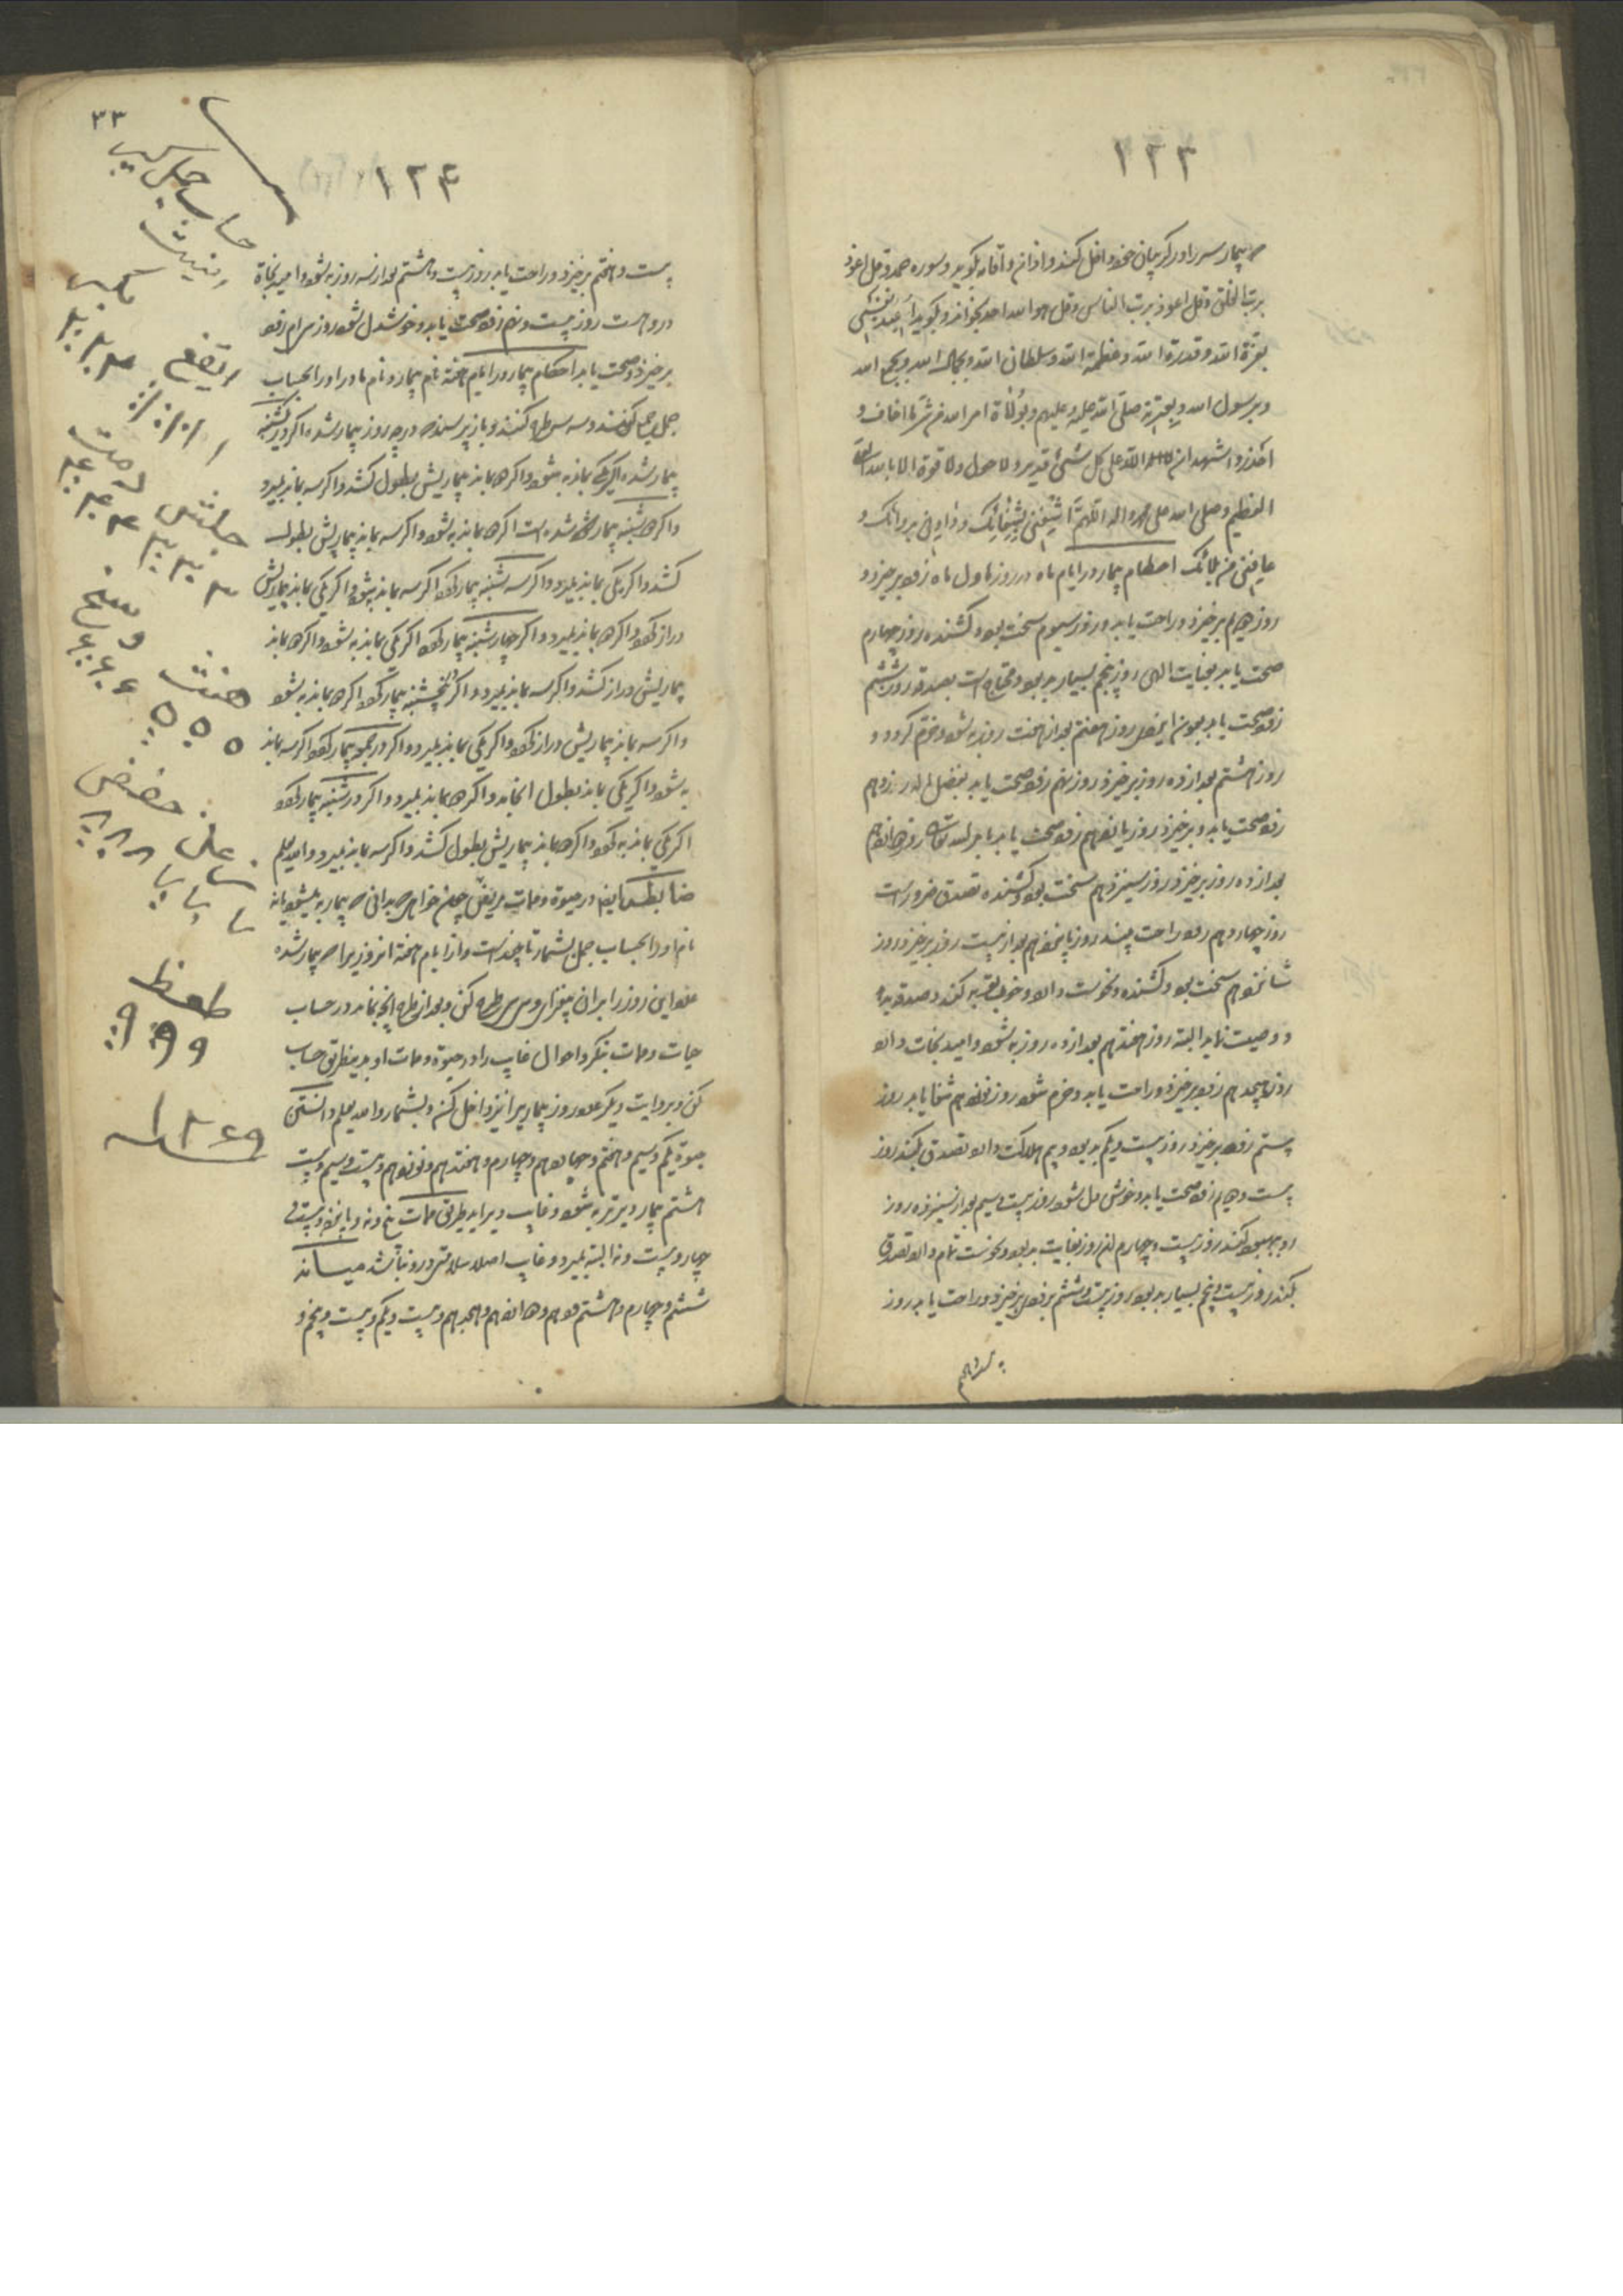 ۱۲۳
بیمار سر را در کریبان خود داخل کند و اذان و اقامه بکوید و سوره حمد و قل اعوذ
برب الفلق و قل اعوذ برب الناس و قل هو الله احد بخواند و بکوید اعیذ نفسی
بعزة الله و قدرة الله و عظمة الله و سلطان الله و بجمال الله و بجمع الله
و برسول الله و بعترته صلی الله علیه و علیهم و بولاة امر الله من شر ما اخاف و
احذر و اشهد ان الله علی کل شیء قدیر و لا حول و لا قوة الا بالله العلی
العظیم و صلی الله علی محمد و اله اللهم اشفنی بشفائک و داونی بدوائک و
عافنی من بلائک احکام بیمار در ایام ماه در روز اول ماه زود برخیزد و
روز دویم برخیزد و راحت یابد و روز سیوم سخت بود و کشنده روز چهارم
صحت یابد بعنایت الهی روز پنجم بسیار بد بود و محتاج است بصدقه روز ششم
زود صحت یابد بعون ایزدی روز هفتم بعد از هفت روز به شود و خرم کردد و
روز هشتم بعد از ده روز برخیزد روز نهم زود صحت یابد بفضل اله روز دهم
زود صحت یابد و برخیزد روز یازدهم زود صحت یابد بامر الله تعالی روز دوازدهم
بعد از ده روز برخیزد روز سیزدهم سخت بود و کشنده تصدق ضرور است
روز چهاردهم زود راحت بیند روز پانزدهم بعد از بیست روز برخیزد روز
شانزدهم سخت بود و کشنده و نحوست دارد و خوف توبه کند و صدقه بدهد
و وصیت نماید البته روز هفدهم بعد از ده روز به شود و امید نجات دارد
روز هیجدهم زود برخیزد و راحت یابد و خرم شود روز نوزدهم شفا یابد روز
بیستم زود برخیزد روز بیست و یکم بد بود و بیم هلاکت دارد تصدق بکند روز
بیست و دویم زود صحت یابد و خوش دل شود روز بیست و سیم بعد از سیزده روز
رو به بهبود کند روز بیست و چهارم این روز بغایت بد بود و نحوست تمام دارد تصدق
بکند روز بیست و پنجم بسیار بد بود روز بیست و ششم بزودی برخیزد و راحت یابد روز
بیست و هفتم
۳۳
۱۲۴
بیست و هفتم برخیزد و راحت یابد روز بیست و هشتم بعد از سه روز به شود و امید نجاة
در وهست روز بیست و نهم زود صحت یابد و خوشدل شود روز سی‌ام زود
برخیزد و صحت یابد احکام بیمار در ایام هفته نام بیمار و نام مادر او را بحساب
جمل جمع کنند و سه سه طرح کنند و باز پرسند که در چه روز بیمار شده اکر در یکشنبه
بیمار شده اکر یک بماند به شود و اکر دو بماند بیماریش بطول کشد و اکر سه بماند بمیرد
و اکر دوشنبه بیمار شده است اکر دو بماند به شود و اکر سه بماند بیماریش بطول
کشد و اکر یکی بماند بمیرد و اکر سه شنبه بیمار کردد اکر سه بماند به شود و اکر یکی بماند بیماریش
دراز کردد و اکر دو بماند بمیرد و اکر چهارشنبه بیمار کردد اکر یکی بماند به شود و اکر دو بماند
بیماریش دراز کشد و اکر سه بماند بمیرد و اکر پنجشنبه بیمار کردد اکر دو بماند به شود
و اکر سه بماند بیماریش دراز کردد و اکر یکی بماند بمیرد و اکر در جمعه بیمار کردد اکر سه بماند
به شود و اکر یکی بماند بطول انجامد و اکر دو بماند بمیرد و اکر در شنبه بیمار کردد
اکر یکی بماند به کردد و اکر دو بماند بیماریش بطول کشد و اکر سه بماند بمیرد والله یعلم
ضابطه ایضا در حیوة و ممات مریض چون خواهی که بدانی که بیمار به میشود یا نه
نام او را بحساب جمل بشمار تا چند است و از ایام هفته انروزیرا که بیمار شده
عدد این روز را بران بیفزای و سی سی طرح کن و بعد از طرح انچه بماند در حساب
حیات و ممات بنکر و احوال غایب را و در حیوة و ممات او بدینطریق حساب
کن و بروایت دیکر عدد روز بیماریرا نیز داخل کند و بشمارد الله یعلم دانستن
حیوة یکم و سیم و هفتم و چهاردهم و هفدهم و نوزدهم و بیست و سیم و بیست
هشتم بیمار دیرتر به شود و غایب دیر اید طریق ممات پنج و نه و پانزده و بیست و
چهار و بیست و نه البته بمیرد و غایب اصلا سلامتی درو نباشد میانه
ششم و چهارم و هشتم و دهم و دوازدهم و هیجدهم و بیست و یکم و بیست و پنجم و
حساب جمل کبیر
اینست
ایقغ
۱ ۱۰ ۱۰۰ ۱۰۰۰
بکر
۲ ۲۰ ۲۰۰
جلش
۳ ۳۰ ۳۰۰
دمت
۴ ۴۰ ۴۰۰
هنث
۵ ۵۰ ۵۰۰
وسخ
۶ ۶۰ ۶۰۰
حفض
۸ ۸۰ ۸۰۰
طصظ
۹ ۹۰ ۹۰۰